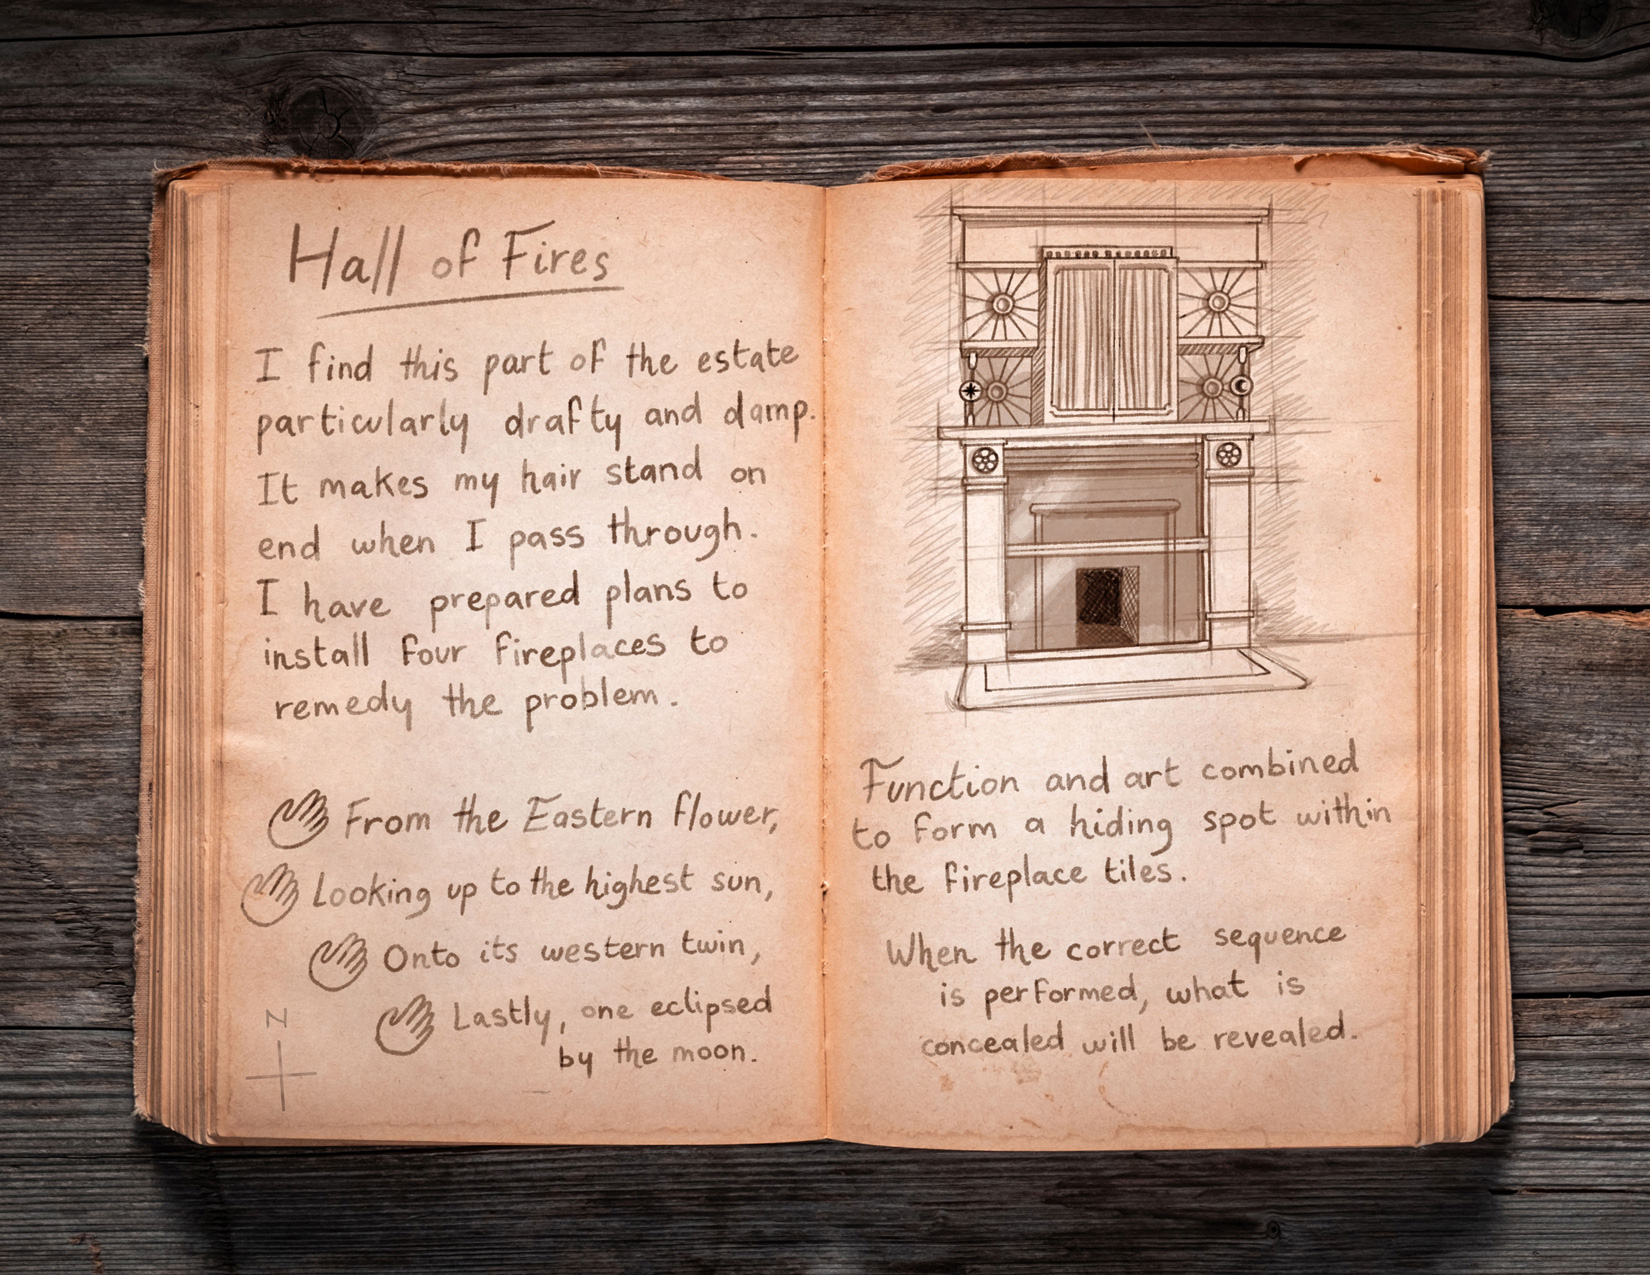 Hall of Fires
I find this part of the estate
particularly drafty and damp.
It makes my hair stand on
end when I pass through.
I have prepared plans to
install four fireplaces to
remedy the problem.
From the Eastern flower,
Looking up to the highest sun,
Onto its western twin,
Lastly, one eclipsed
by the moon.
N
Function and art combined
to form a hiding spot within
the fireplace tiles.
When the correct sequence
is performed, what is
concealed will be revealed.